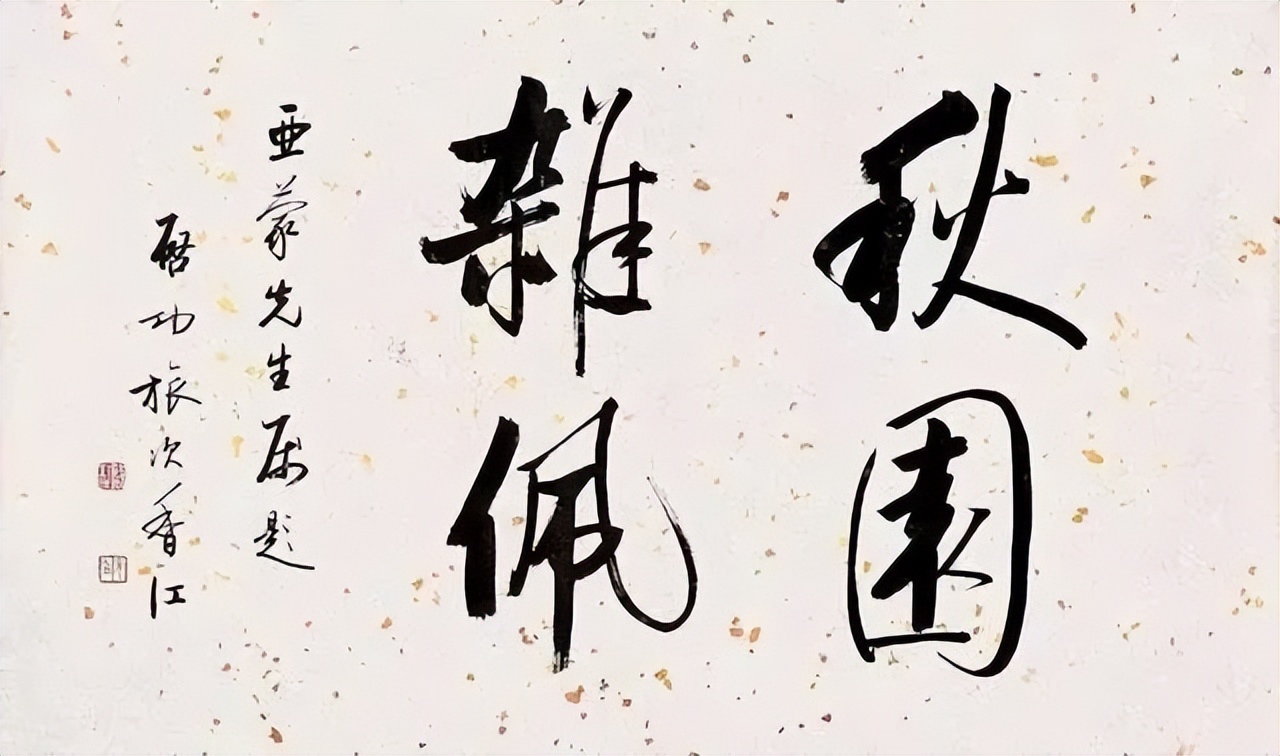 秋園
雜佩
亚蒙先生属题
啓功旅次香江